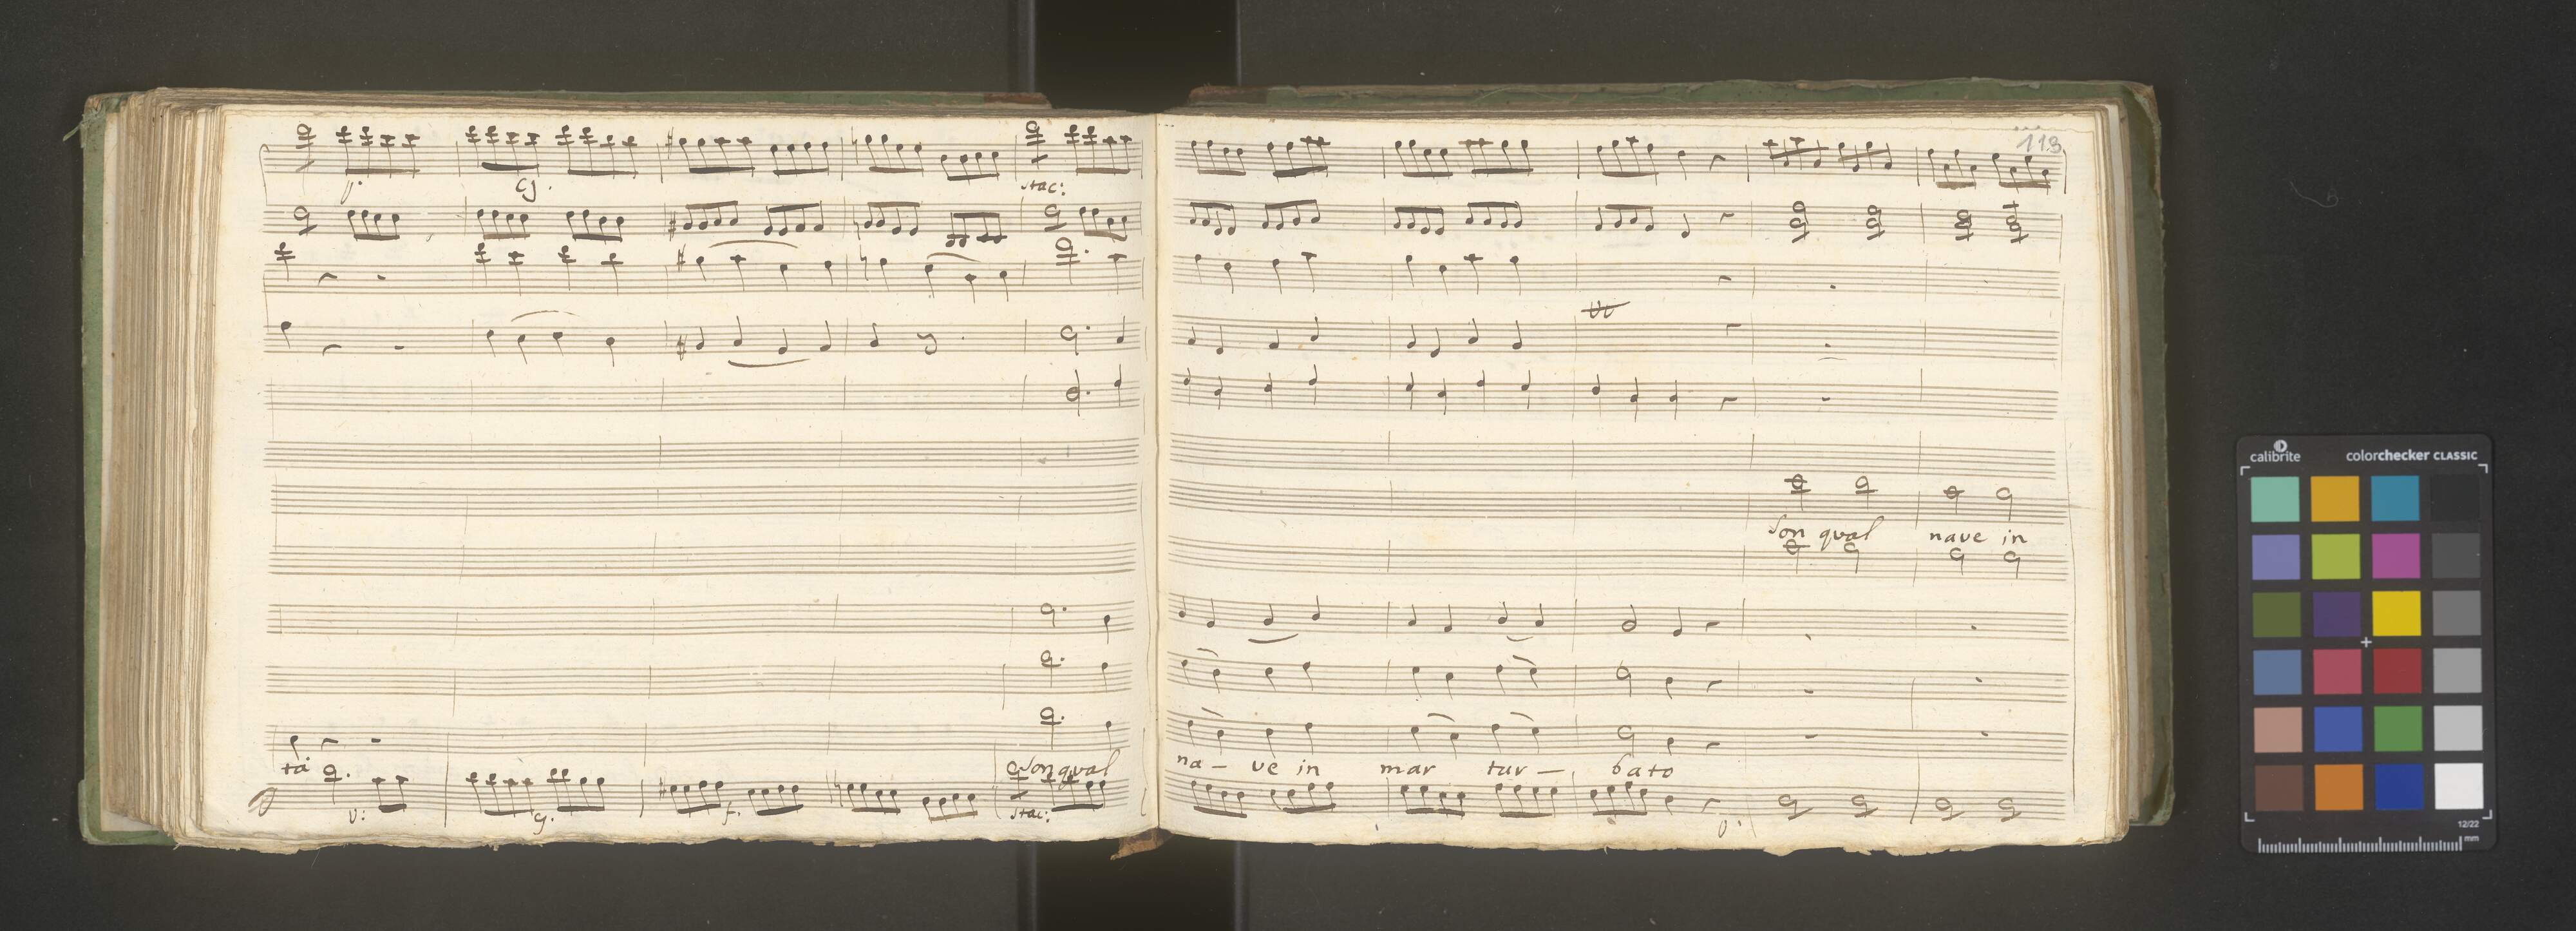 113
stac:
Son qual
nave in
tà
Son qual
stac:
na - ve in mar tur - bato
calibrite
colorchecker CLASSIC
12/22
mm